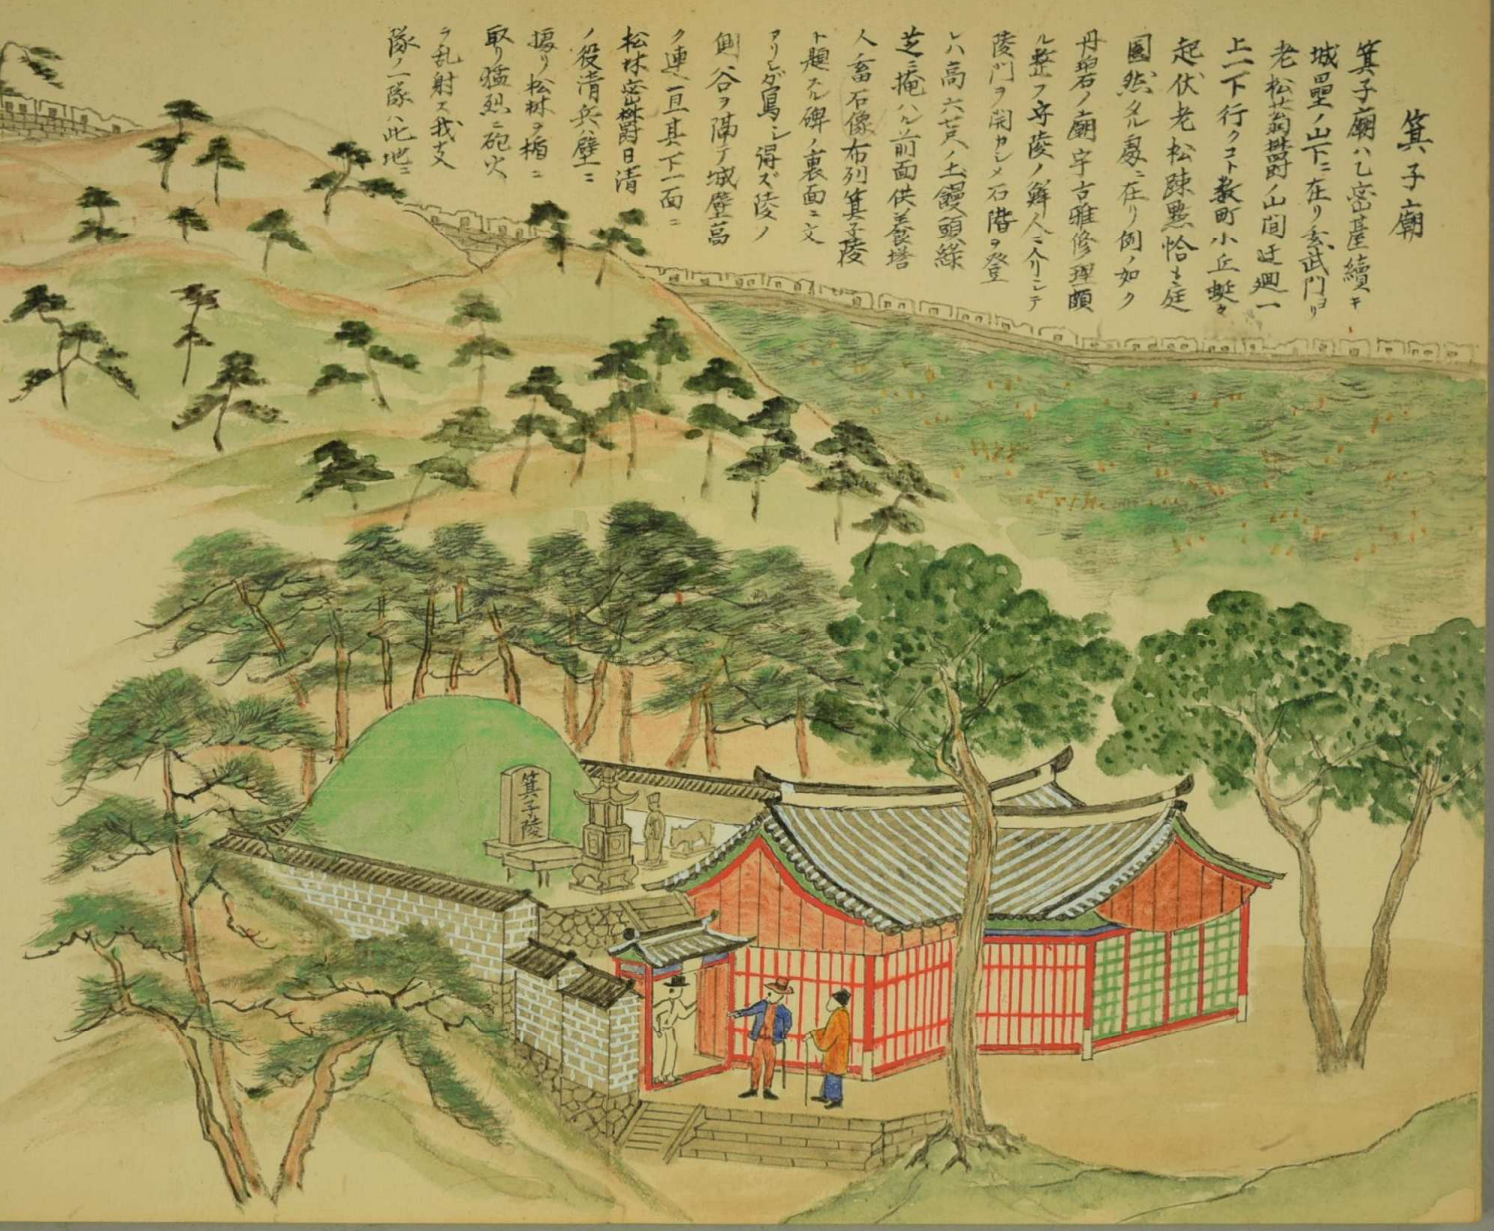 箕子廟
箕子廟ハ乙密臺續キ
城壘ノ山下ニ在リ玄武門ヨリ
老松蓊欝ノ山間迂廻一
上一下行クコト数町小丘蜒々
起伏老松疎點恰モ庭
園然タル處ニ在リ例ノ如ク
丹碧ノ廟宇古雅修理頗
ル整フ守陵ノ鮮人ニ入リンテ
陵門ヲ開カシメ石階ヲ登
レハ高六七尺ノ土饅頭緑
芝ニ掩ハル前面供養塔
人畜石像布列箕子陵
ト題スル碑ノ裏面ニ文
アリシガ寫シ得ズ陵ノ
側谷ヲ隔テ城壁高
ク連亘其下一面ニ
松林密欝日清
ノ役清兵ハ壁ニ
據リ松林ヲ楯ニ
取リ猛烈ニ砲火
ヲ乱射ス我支
隊ノ一隊ハ此地ニ
箕子陵